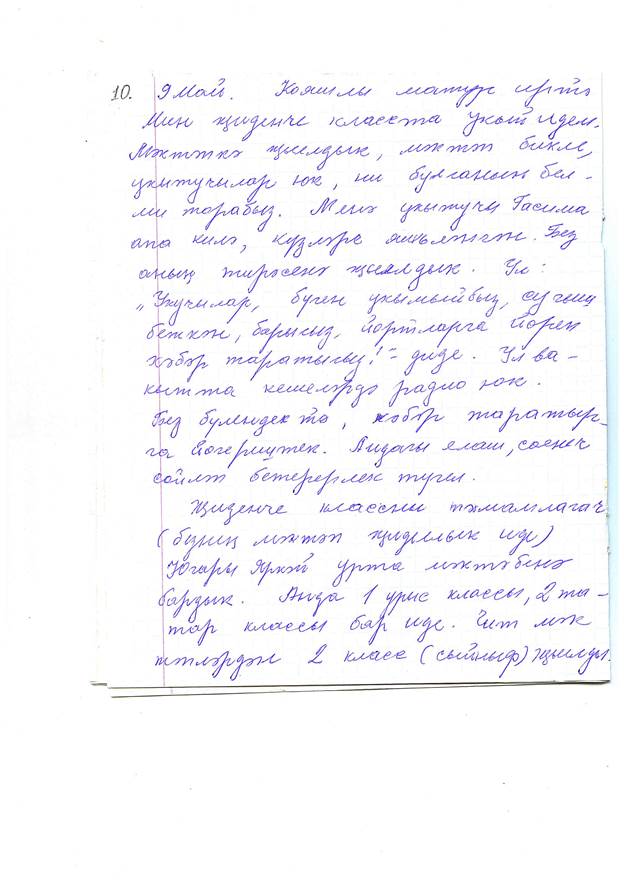 10. 9 Май. Кояшлы матур иртә
Мин җиденче класста укый идем.
Мәктәпкә җыелдык, мәктәп бикле,
укытучылар юк, ни булганын бел-
ми торабыз. Менә укытучы Гасима
апа килә, күзләре яшьләнгән. Без
аның тирәсенә җыелдык. Ул:
„Укучылар, бүген укымыйбыз, сугыш
беткән, барысыз, йортларга йөреп
хәбәр таратыгыз!" – диде. Ул ва-
кытта кешеләрдә радио юк.
Без бүлендек тә, хәбәр таратыр-
га йөгерештек. Андагы елаш, сөенеч
сөйләп бетерерлек түгел.
Җиденче классны тәмамлагач
(безнең мәктәп җидееллык иде)
Югары Яркәй урта мәктәбенә
бардык. Анда 1 урыс классы, 2 та-
тар классы бар иде. Чит мәк
тәпләрдән 2 класс (сыйныф) җыелды.